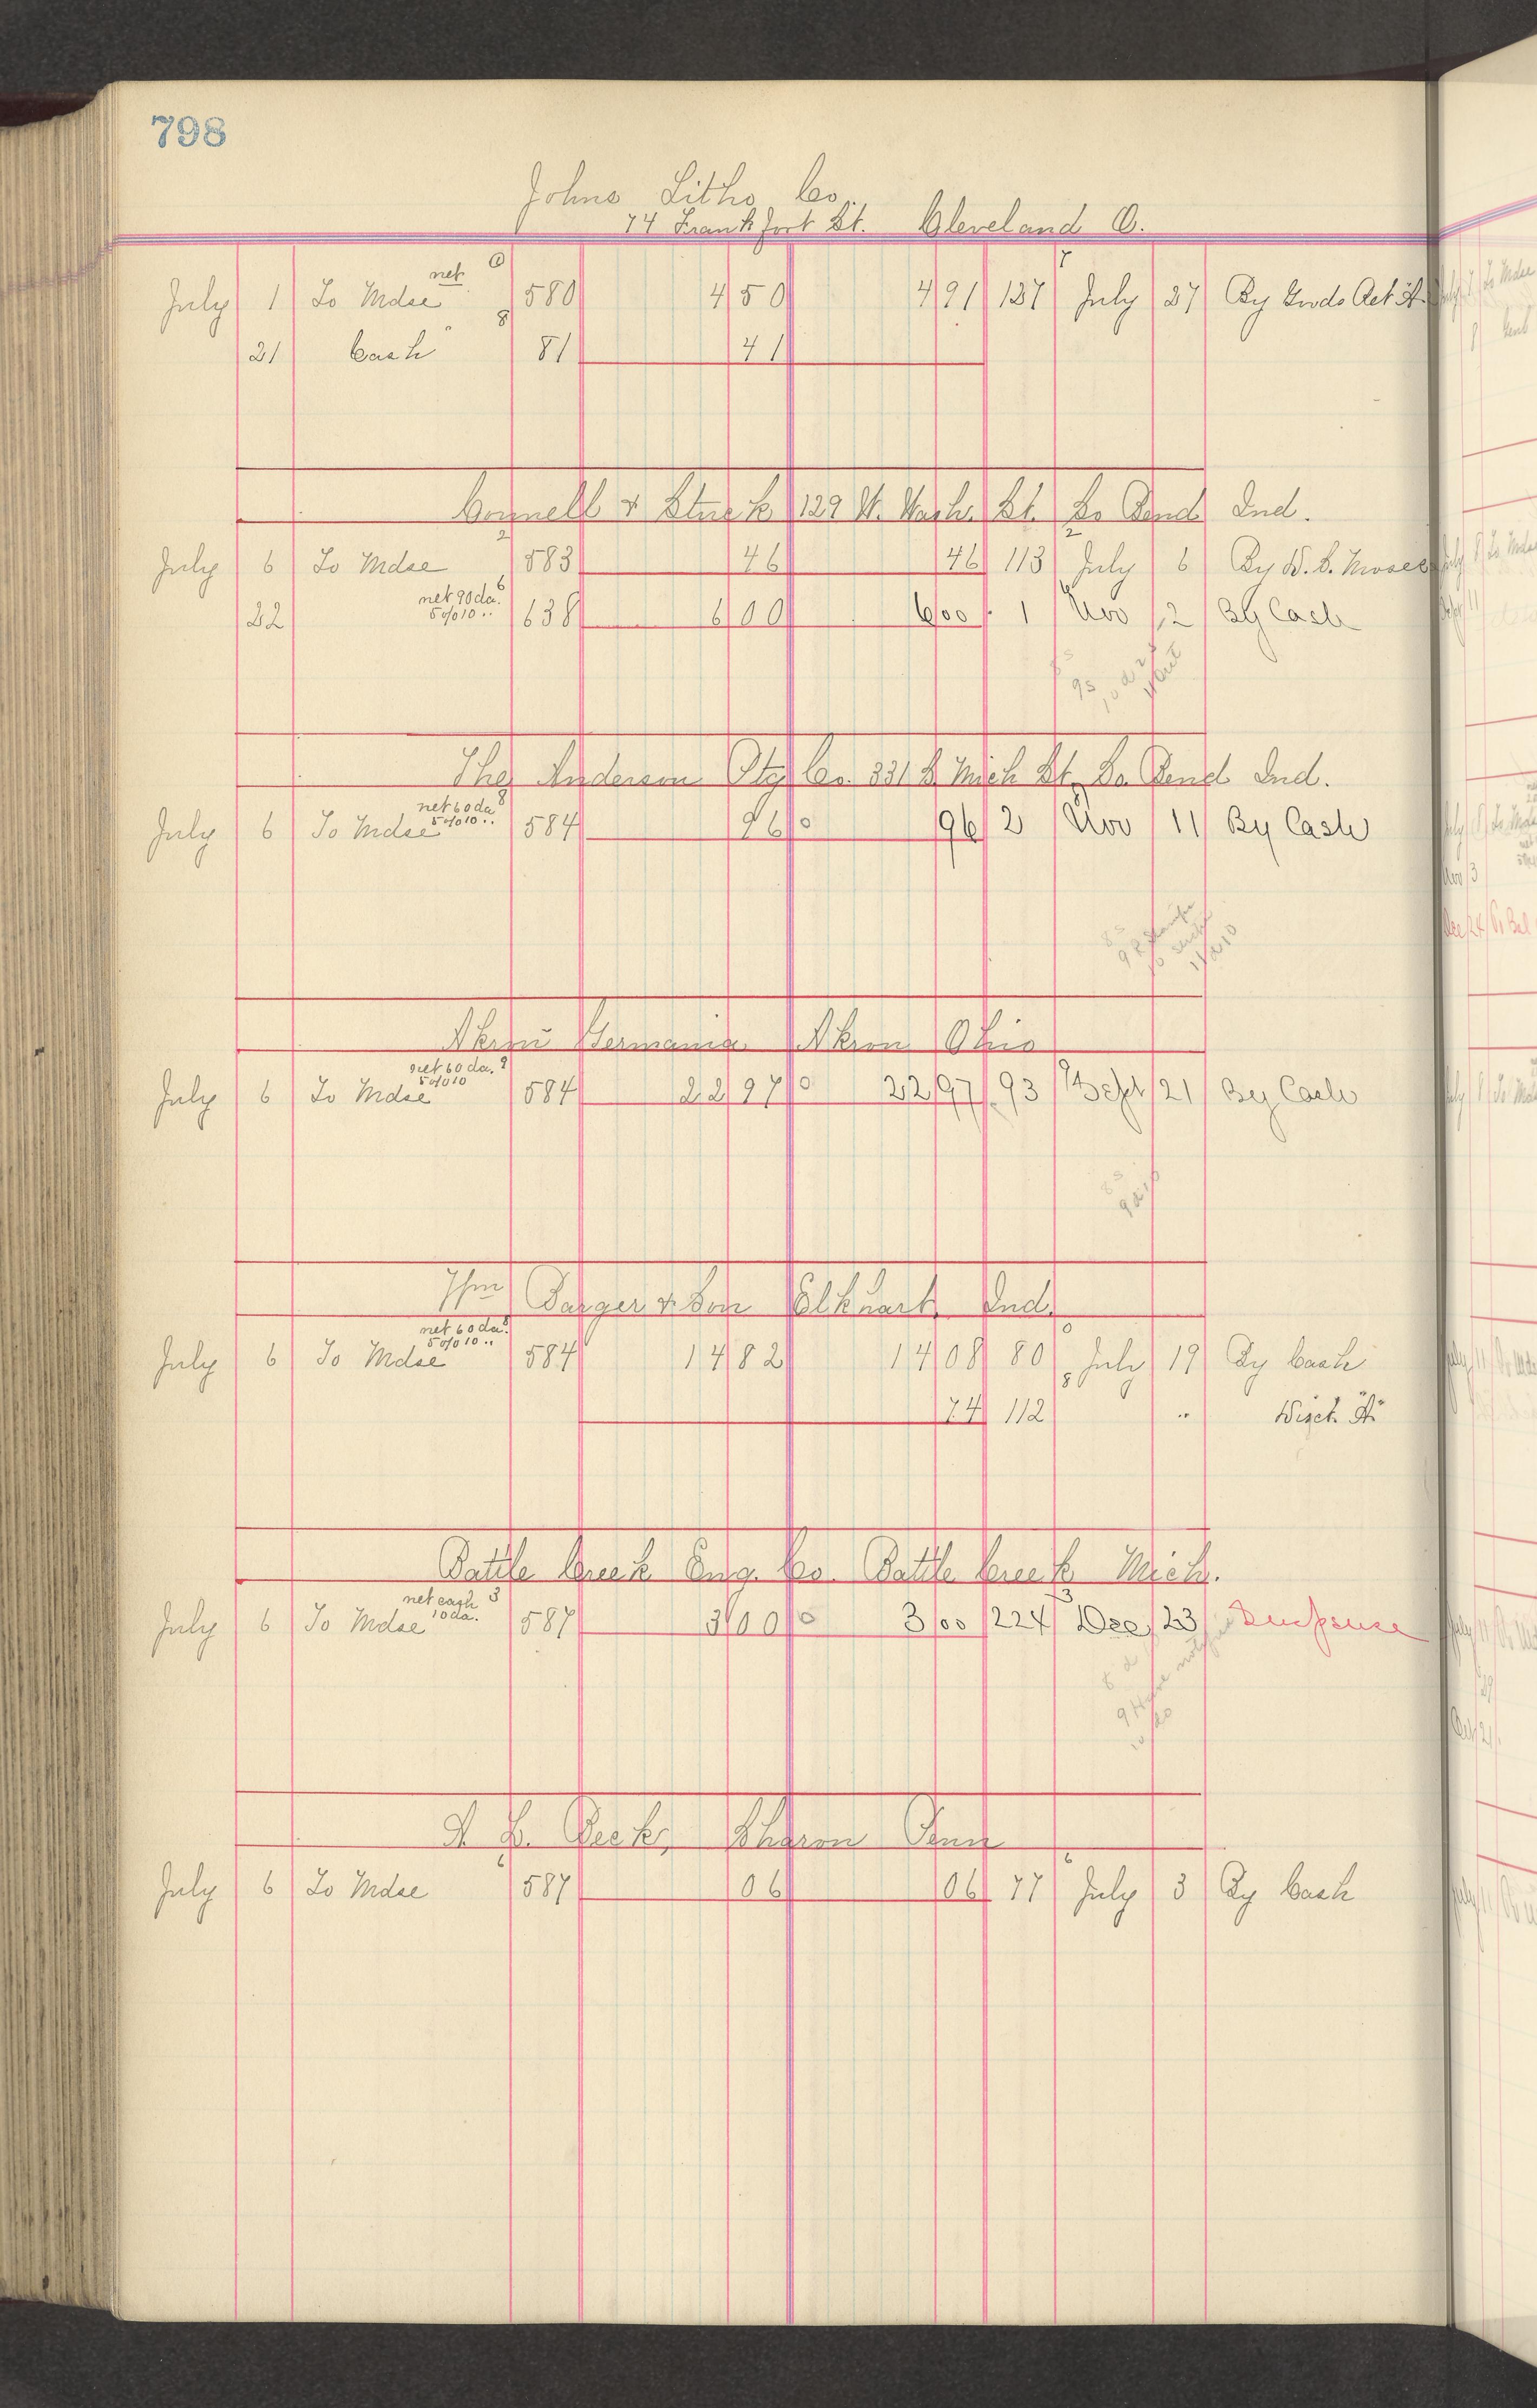 798
Johns Litho Co.
74 Frankfort St. Cleveland O.
July 1 To Mdse net 580 4 50 4 91 127 July 27 By Goods Ret "A"
21 Cash " 81 41
Connell & Stuck 129 W. Wash. St. So Bend Ind.
July 6 To Mdse 583 46 46 113 July 6 By D. S.
22 net 90 da. 5% 10 .. 638 6 00 6 00 1 Nov 2 By Cash
The Anderson Ptg Co. 331 S Mich St. So. Bend Ind.
July 6 To Mdse net 60 da 5% 10 .. 584 96 0 96 2 Nov 11 By Cash
Akron Germania Akron Ohio
July 6 To Mdse net 60 da. 5% 10 584 22 97 0 22 97 93 Sept 21 By Cash
Wm Barger & Son Elkhart, Ind.
July 6 To Mdse net 60 da. 5% 10 .. 584 14 82 14 08 80 July 19 By Cash
74 112 .. Disct. "A"
Battle Creek Eng. Co. Battle Creek Mich.
July 6 To Mdse net cash 10 da. 587 3 00 0 3 00 224 Dec 23 Suspense
A. L. Beck, Sharon Penn
July 6 To Mdse 587 06 06 77 July 3 By Cash